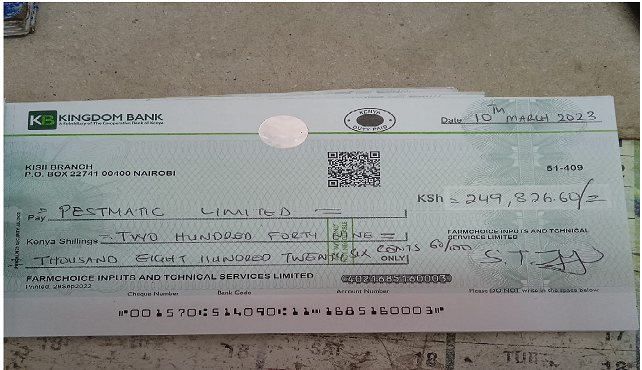 KB KINGDOM BANK
A Subsidiary of The Co-operative Bank of Kenya
KENYA
DUTY PAID
Date 10TH MARCH 2023
KISII BRANCH
P.O. BOX 22741 00400 NAIROBI
51-409
KSh = 249,826.60/=
Pay PESTMATIC LIMITED =
Kenya Shillings = TWO HUNDRED FORTY NINE =
THOUSAND EIGHT HUNDRED TWENTY SIX CENTS 60/100 ONLY
FARMCHOICE INPUTS AND TCHNICAL SERVICES LIMITED
FARMCHOICE INPUTS AND TCHNICAL SERVICES LIMITED
Printed: 28Sep2022
4021685160003
Cheque Number Bank Code Account Number
Please DO NOT write in the space below
"001570:514090:11"1685160003"
18 SAT 18 TUE 18